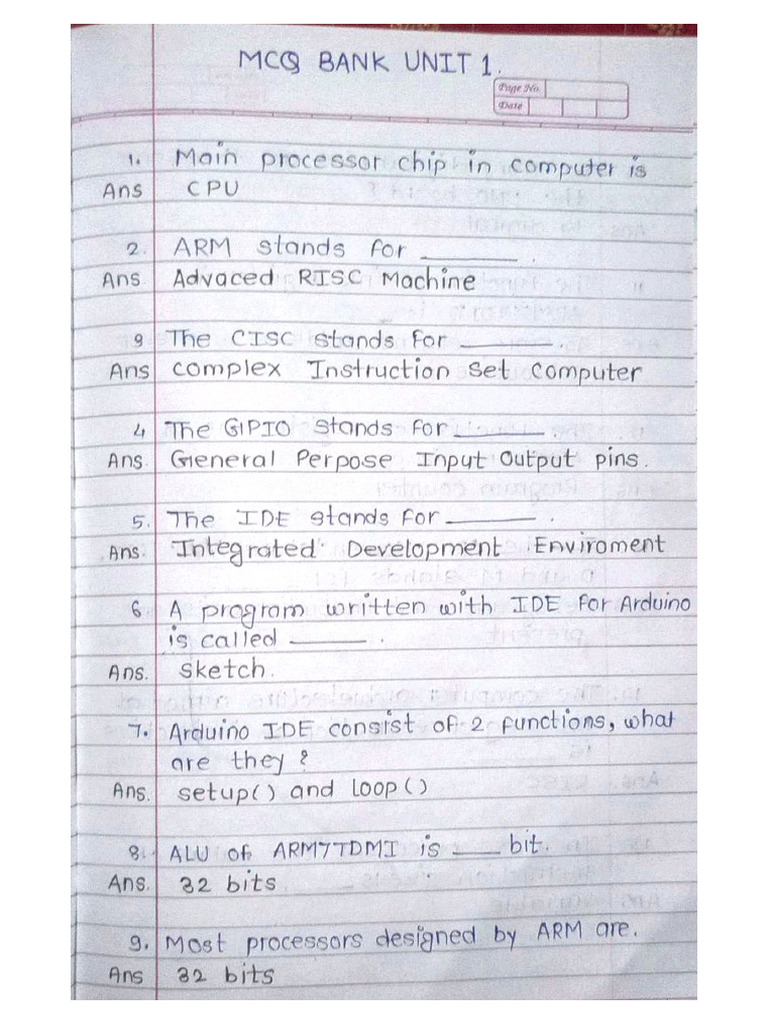 MCQ BANK UNIT 1.
Page No.
Date
1. Main processor chip in computer is
Ans CPU
2. ARM stands for ________.
Ans Advaced RISC Machine
3 The CISC stands for ________.
Ans complex Instruction set computer
4 The GIPIO stands for ________.
Ans. General Perpose Input Output pins.
5. The IDE stands for ________.
Ans. Integrated Development Enviroment
6 A program written with IDE for Arduino
is called ________.
Ans. sketch.
7. Arduino IDE consist of 2 functions, what
are they ?
Ans. setup() and loop()
8. ALU of ARM7TDMI is ___ bit.
Ans. 32 bits
9. Most processors designed by ARM are.
Ans 32 bits